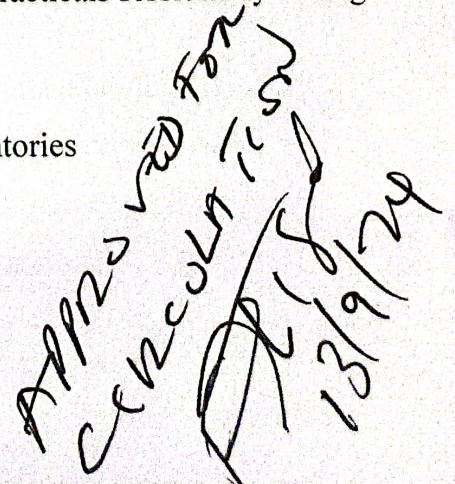 tories
APPROVED FOR
CIRCULATION
13/9/24